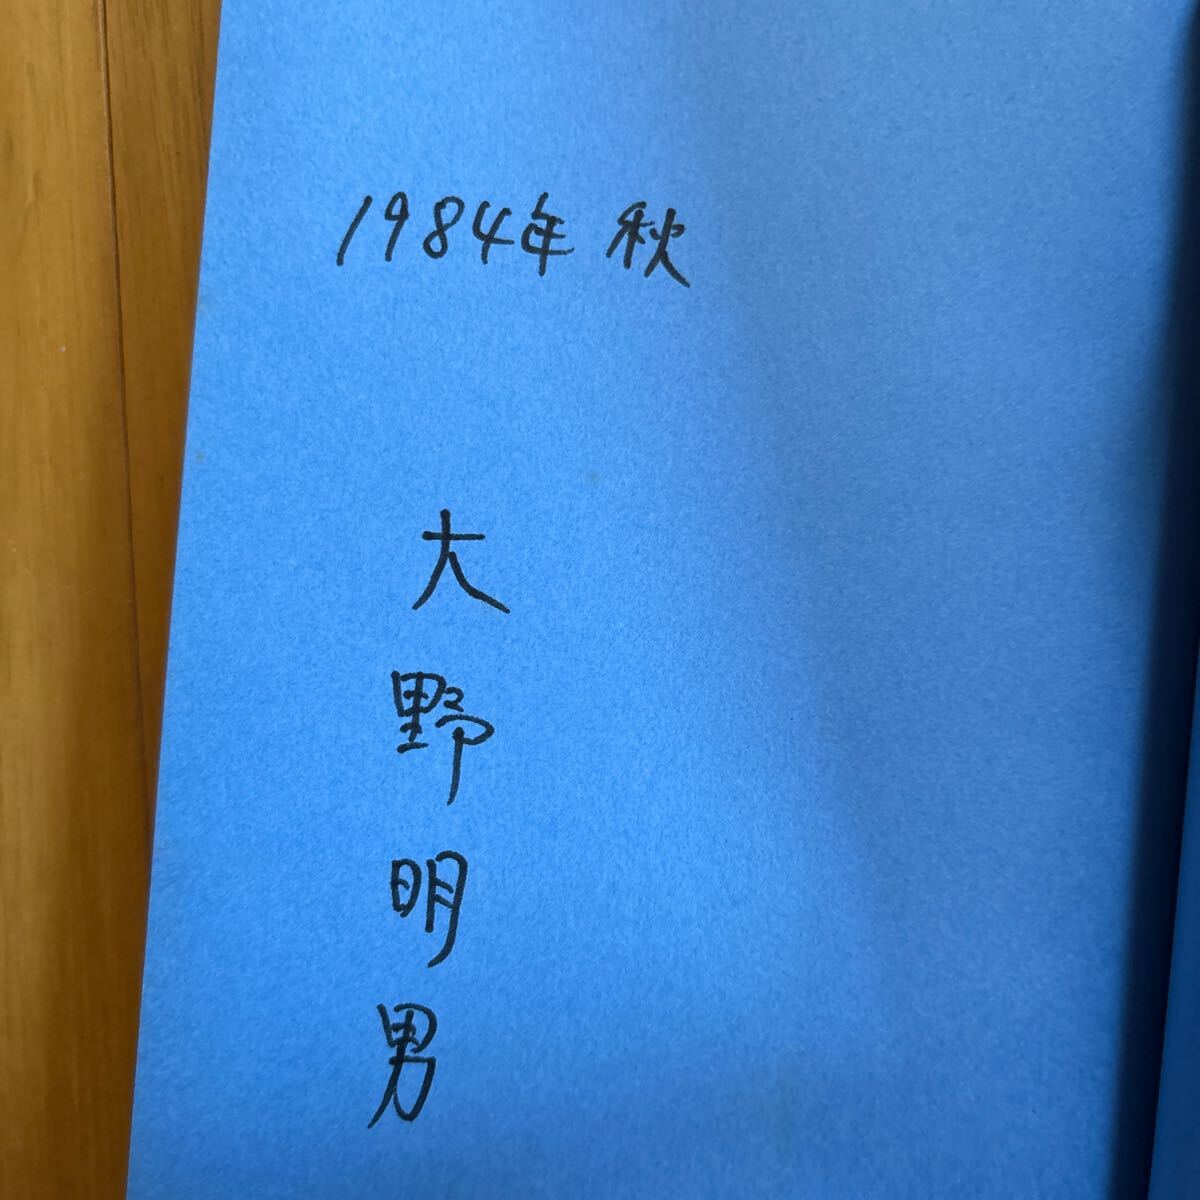 1984年 秋
大野明男